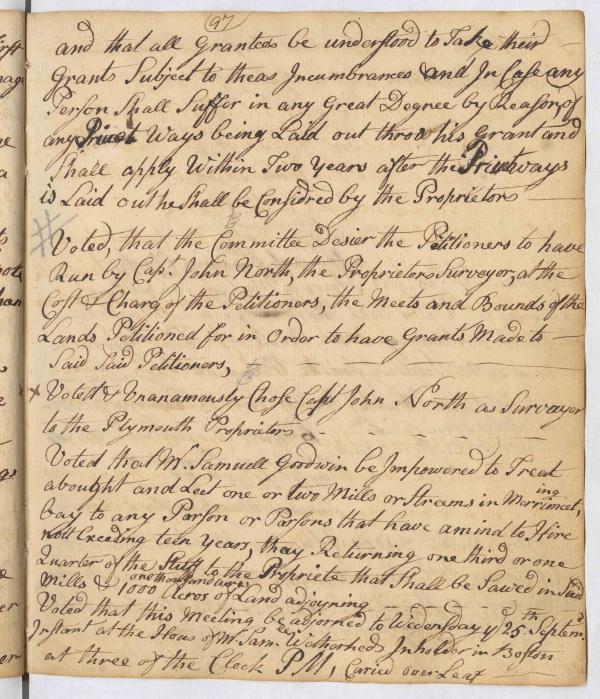 97
and that all Grantees be understood to Take their
Grants Subject to theas Incumbrances and In Case any
Person Shall Suffer in any Great Degree by Reason of
any Privet Ways being Laid out throo his Grant and
Shall apply Within Two Years after the Privetways
is Laid out he Shall be Considred by the Proprietors
Voted, that the Committee Desier the Petitioners to have
Run by Capt. John North, the Proprietors Surveyor, at the
Cost & Charg of the Petitioners, the Meets and Bounds of the
Lands Petitioned for in Order to have Grants Made to
Said Said Petitioners,
x Voted & Unanamously Chose Capt John North as Surveyor
to the Plymouth Proprietors
Voted that Mr. Samuell Goodwin be Impowered to Treat
abought and Lect one or two Mills or Streems in Merrimeeting
bay to any Parson or Parsons that have a mind to Hire
not Exceeding teen Years, thay Returning one third or one
Quarter of the Stuff to the Propriete that Shall be Sawed in Said
Mills & one thousand acres
1000 Acros of Land adjoyning
Voted that this Meeting be adjorned to Wedensday ye 25th Septem.
Instant at the Hous of Mr. Saml. Wethorheds Inholder in Boston
at three of the Clock PM, Caried over Leaf